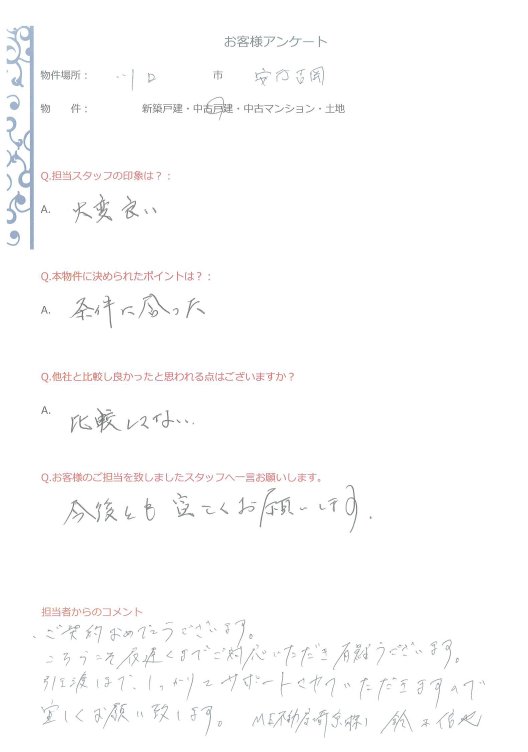 お客様アンケート
物件場所： 川口 市 安行吉岡
物　件： 新築戸建・中古戸建・中古マンション・土地
Q.担当スタッフの印象は？：
A. 大変良い
Q.本物件に決められたポイントは？：
A. 条件に合った
Q.他社と比較し良かったと思われる点はございますか？
A. 比較してない．
Q.お客様のご担当を致しましたスタッフへ一言お願いします。
今後とも宜しくお願いします．
担当者からのコメント
ご契約おめでとうございます。
こちらこそ夜遅くまでご対応いただき有難うございます。
引き渡しまで、しっかりとサポートさせていただきますので
宜しくお願い致します。 ME不動産埼京(株) 鈴木